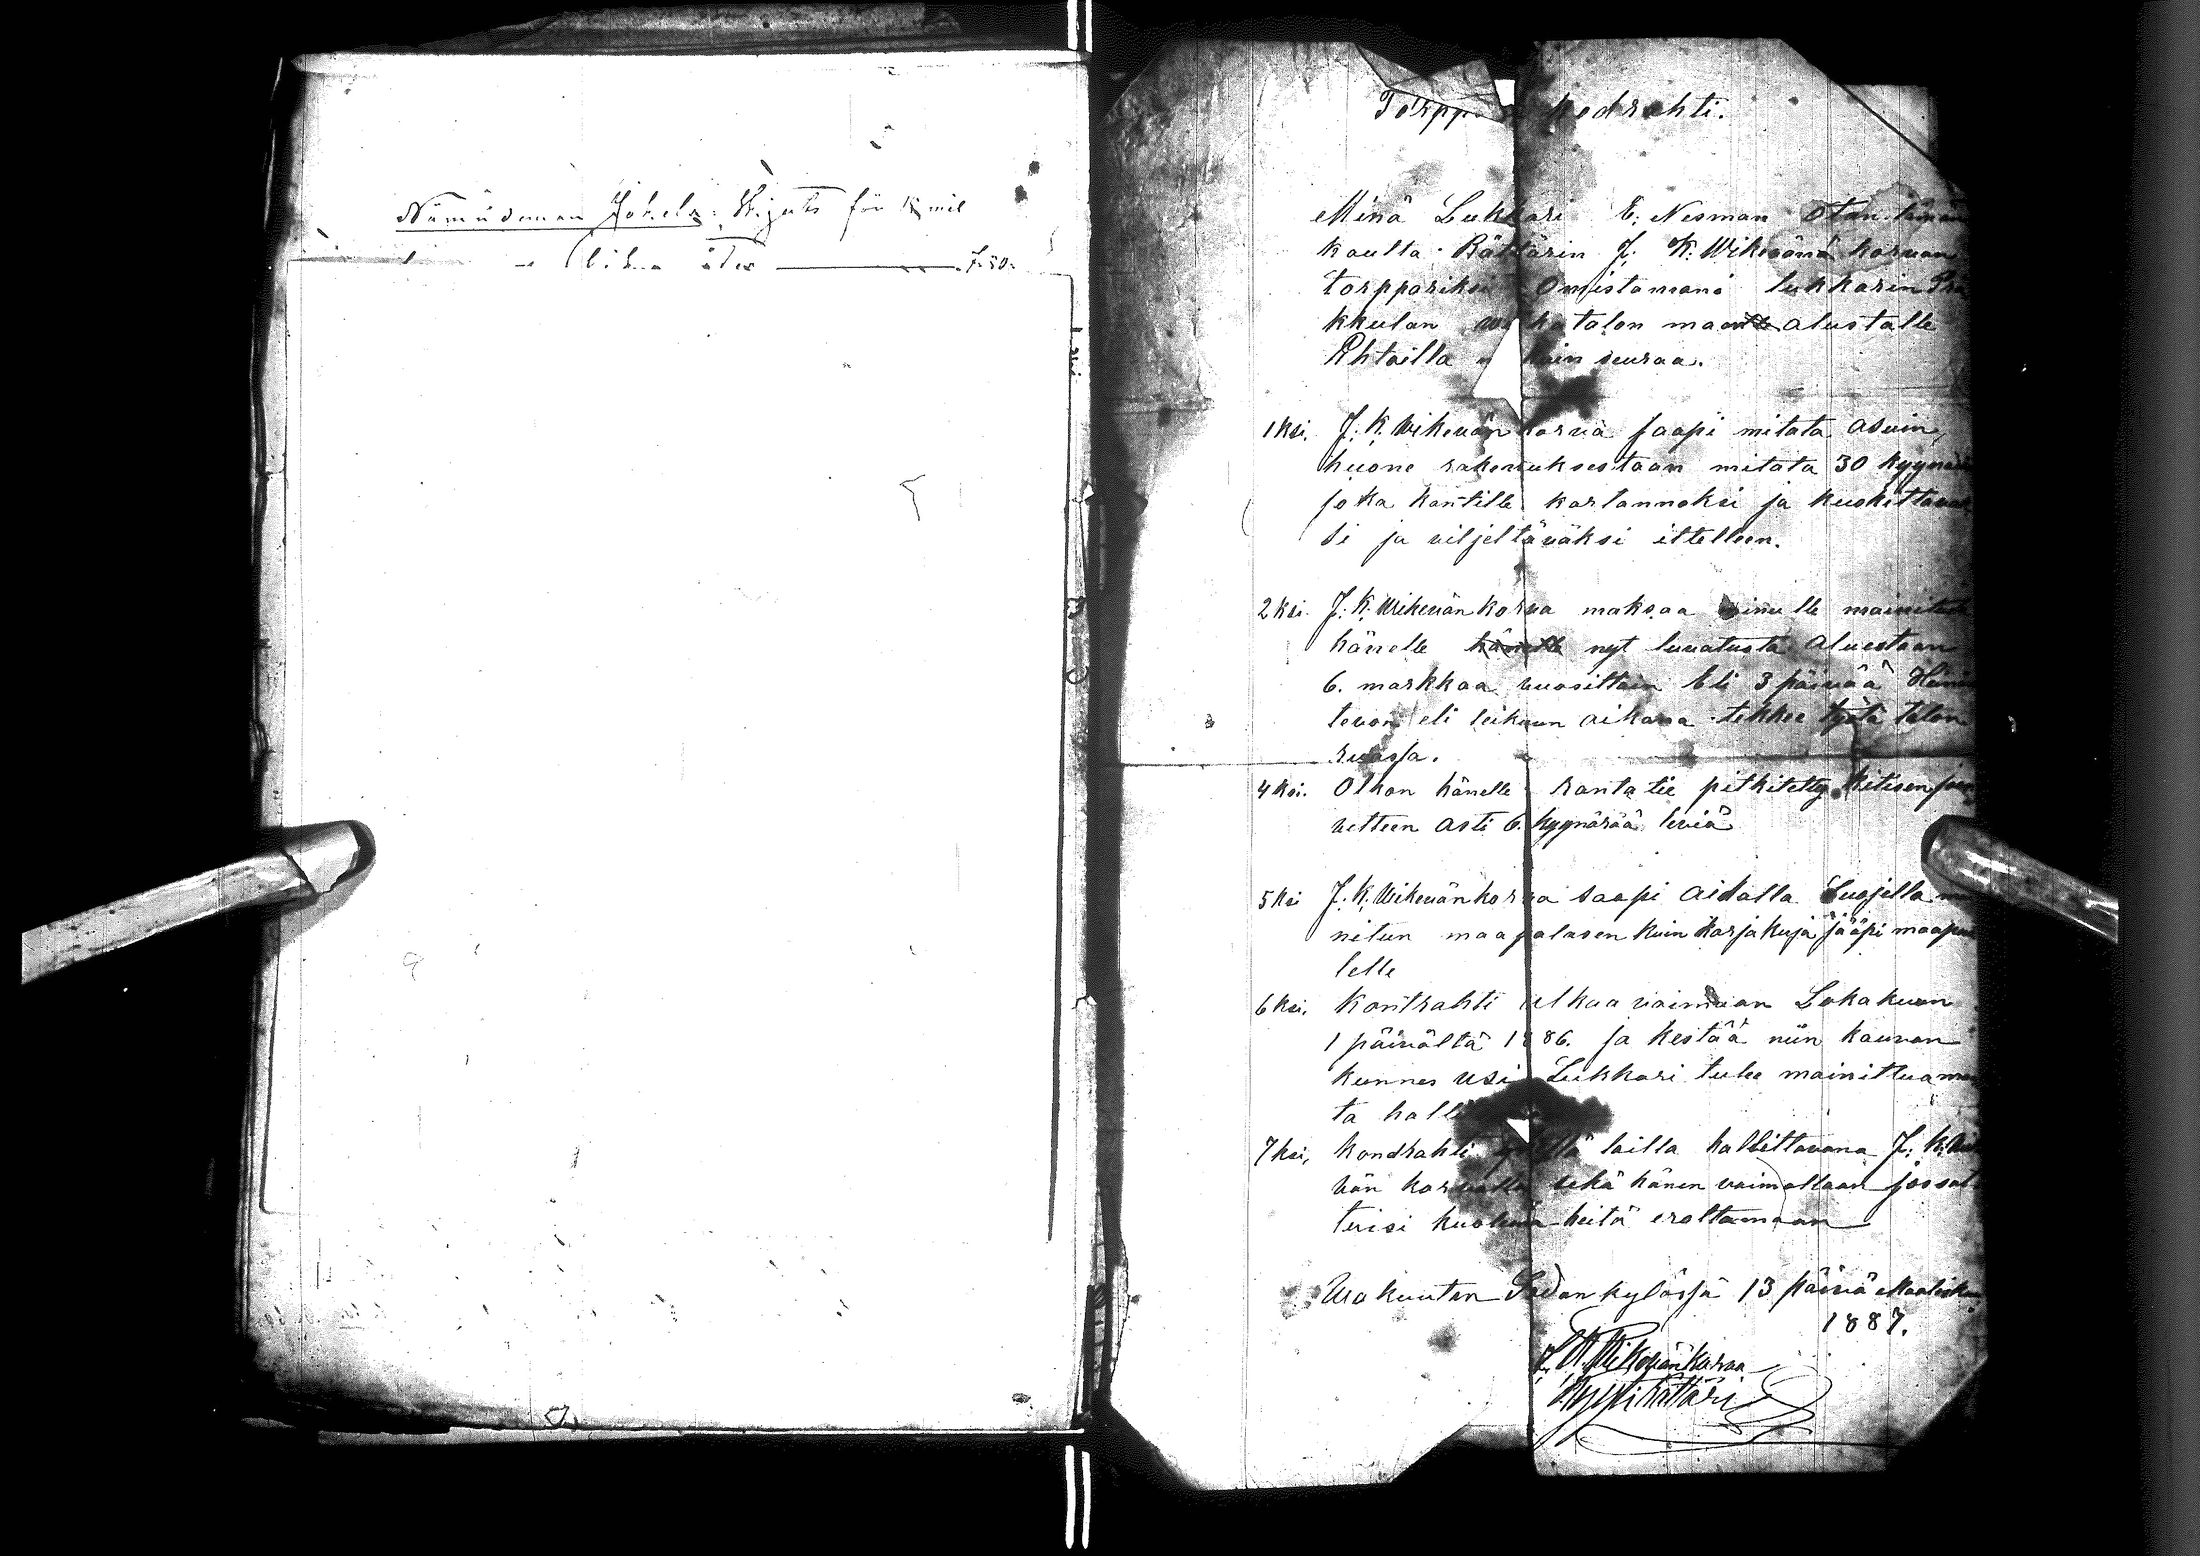 Nämndeman Jokela: Skjuts för K mil
7.50.
Torppa kodrahti.
Minä Lukkari E. Nesman Otan tämän
kautta Rättärin J. K. Wikevänä korvan
torppariksi Omistamani lukkarin
kkulan talon maalle alustalle
Ehtoilla kuin seuraa.
1ksi. J. K. Wikevän korva saapi mitata asuin
huone rakennuksestaan mitata 30 kyynärä
joka kantille kartannoksi ja kuokittavak
si ja viljeltäväksi ittelleen.
2ksi. J. K. Wikevän korva maksaa minulle mainitusta
hänelle hänelle nyt luvatusta Aluestaan
6. markkaa vuosittain Eli 3 päivää Heinän
tevon eli leikuun aikana tekkee työtä talon
ruassa.
4ksi. Olkon hänelle ranta tie pitkitetty Kitisen joen
vetteen asti 6. kyynärää leviä
5ksi J. K. Wikevän korva saapi aidalla Suojella
nitun maapalasen kuin karjakuja jääpi maapa
lelle
6ksi. Kontrahti alkaa voimaan Lokakuun
1 päivältä 1886. ja kestää niin kauvan
kunnes Usi Lukkari tulee mainittua maa
ta
7ksi, kondrahti tällä lailla hallittavana J. K. Wike
vän korvalla sekä hänen vaimollaan jos sat
tuisi kuolema heitä eroittamaan
Wakuutan Sodankylässä 13 päivä Maalisku
1887.
J. K. Wikevänkorva
Rättäri